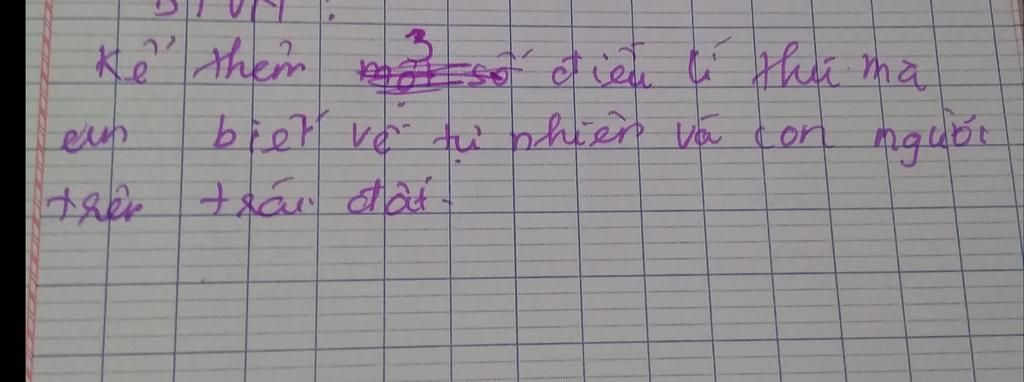 BTVN:
Kể thêm 3 điều lí thú mà
em biết về tự nhiên và con người
trên trái đất.